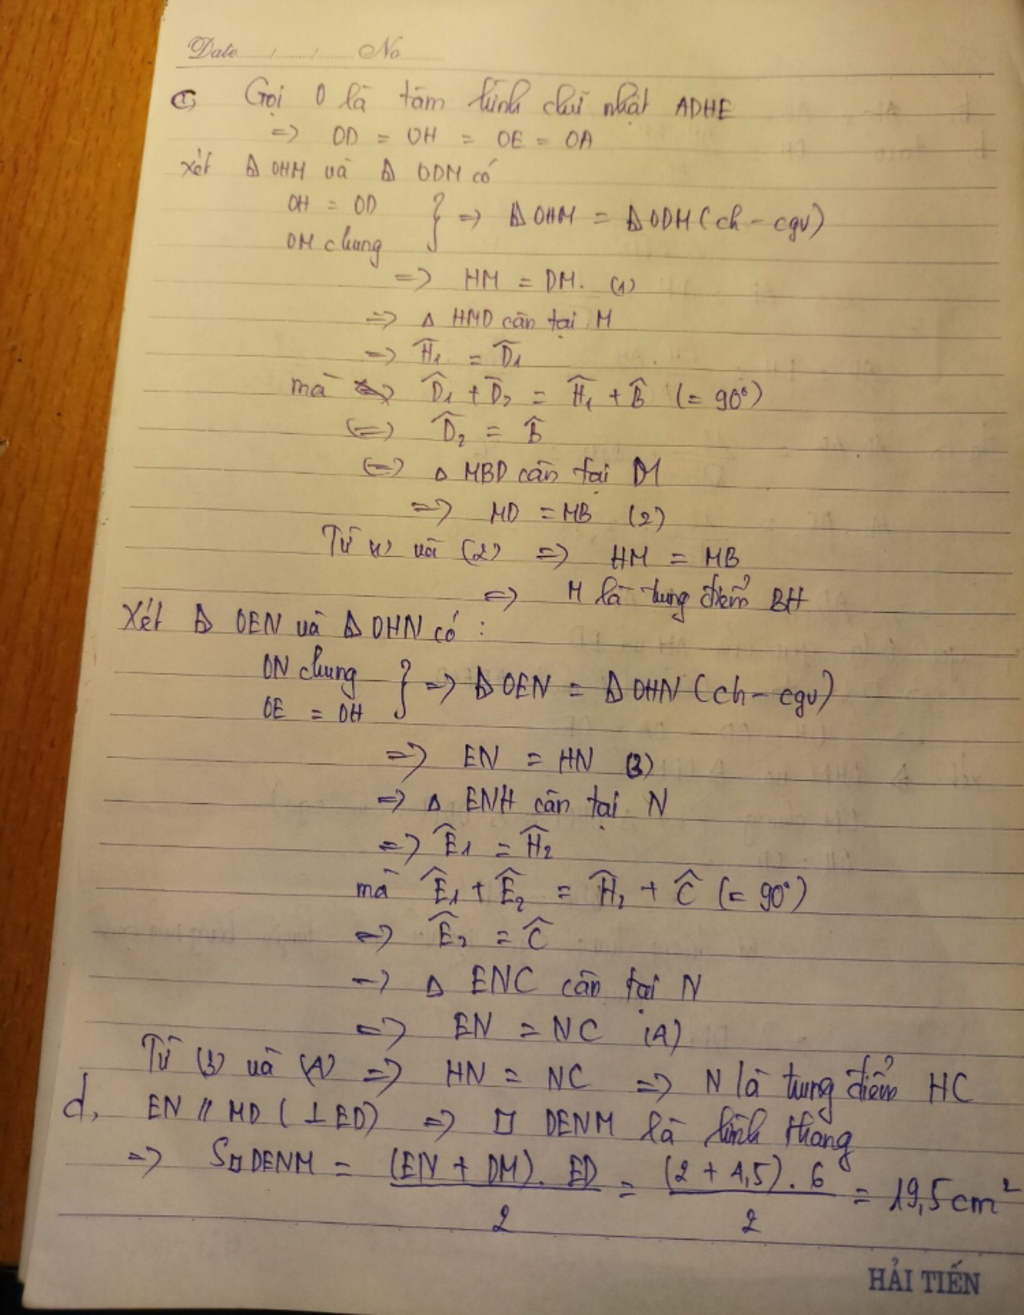 Date / / No
c, Gọi O là tâm hình chữ nhật ADHE
=> OD = OH = OE = OA
Xét Δ OHM và Δ ODM có
OH = OD
OM chung } => Δ OHM = Δ ODM (ch - cgv)
=> HM = DM. (1)
=> Δ HMD cân tại M
=> Ĥ₁ = D̂₁
mà D̂₁ + D̂₂ = Ĥ₁ + B̂ (= 90°)
(=) D̂₂ = B̂
(=) Δ MBD cân tại M
=> MD = MB (2)
Từ (1) và (2) => HM = MB
=> M là trung điểm BH
Xét Δ OEN và Δ OHN có :
ON chung
OE = OH } => Δ OEN = Δ OHN (ch - cgv)
=> EN = HN (3)
=> Δ ENH cân tại N
=> Ê₁ = Ĥ₂
mà Ê₁ + Ê₂ = Ĥ₂ + Ĉ (= 90°)
=> Ê₂ = Ĉ
=> Δ ENC cân tại N
=> EN = NC (4)
Từ (3) và (4) => HN = NC => N là trung điểm HC
d, EN // MD ( ⊥ ED) => □ DENM là hình thang
=> S□DENM = (EN + DM). ED / 2 = (2 + 4,5). 6 / 2 = 19,5 cm²
HẢI TIẾN